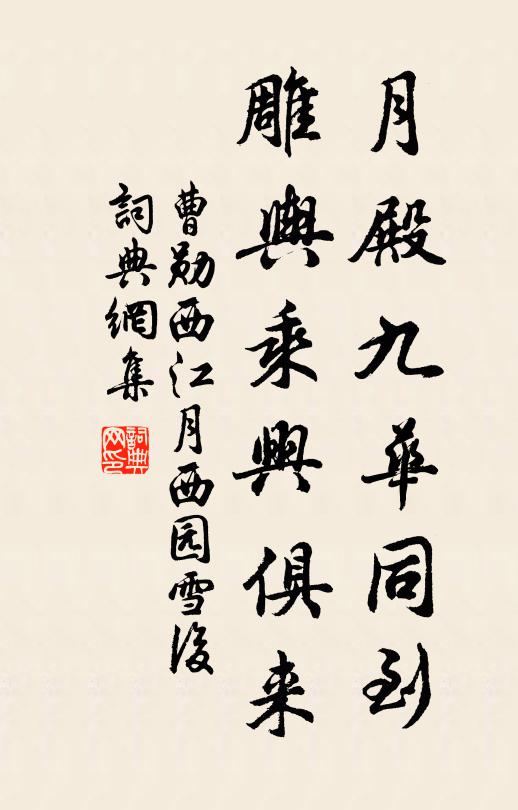 月殿九華同到
雕輿乘興俱来
曹勋西江月西园雪後
詞典網集
詞典网印